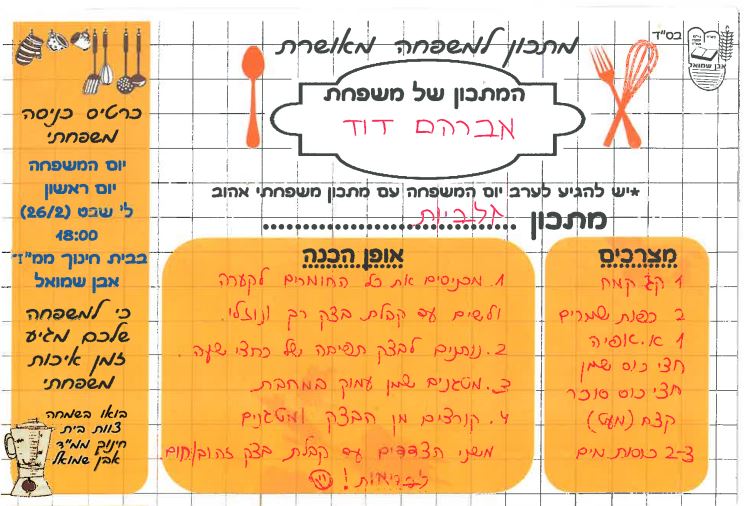 בס"ד
אבן שמואל
מתכון למשפחה מאושרת
המתכון של משפחת
אברהם דוד
*יש להגיע לערב יום המשפחה עם מתכון משפחתי אהוב
מתכון זלביות
מצרכים
1 קג קמח
2 כפות שמרים
1 א.אפיה
חצי כוס שמן
חצי כוס סוכר
קצח (מעט)
2-3 כוסות מים
אופן הכנה
1. מכניסים את כל החומרים לקערה
ולשים עד קבלת בצק רך ונוזלי.
2. נותנים לבצק תפיחה של כחצי שעה.
3. מטגנים שמן עמוק במחבת.
4. קורצים מן הבצק ומטגנים
משני הצדדים עד קבלת בצק זהוב/חום
לבריאות!
כרטיס כניסה
משפחתי
יום המשפחה
יום ראשון
ל' שבט (26/2)
18:00
בבית חינוך ממ"ד
אבן שמואל
כי למשפחה
שלכם מגיע
זמן איכות
משפחתי
בואו בשמחה
צוות בית
חינוך ממ"ד
אבן שמואל